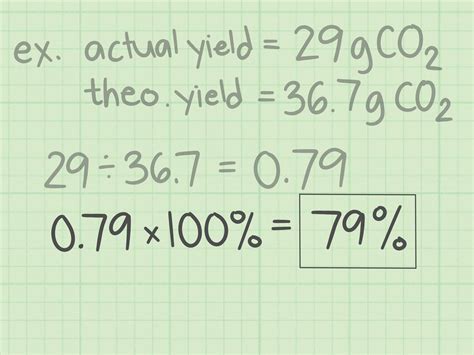 ex. actual yield = 29gCO₂
theo. yield = 36.7gCO₂
29÷36.7 = 0.79
0.79 x 100% = 79%